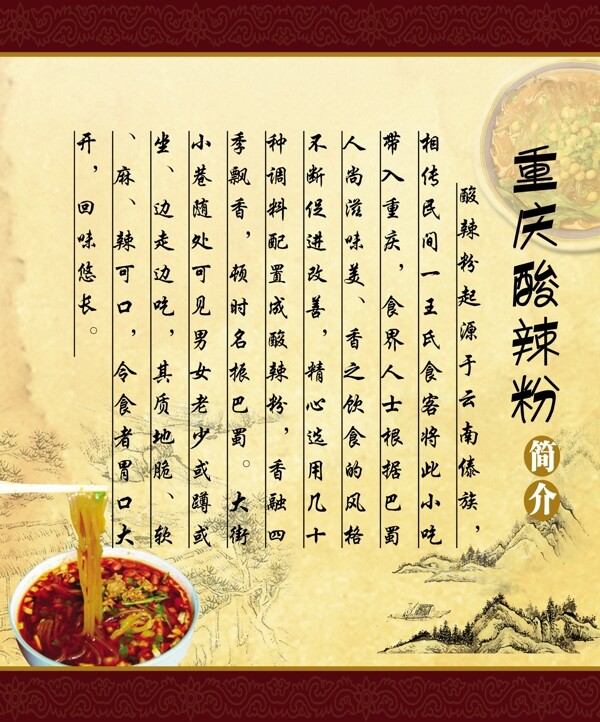 重庆酸辣粉
简介
酸辣粉起源于云南傣族，
相传民间一王氏食客将此小吃
带入重庆，食界人士根据巴蜀
人尚滋味美、香之饮食的风格
不断促进改善，精心选用几十
种调料配置成酸辣粉，香融四
季飘香，顿时名振巴蜀。大街
小巷随处可见男女老少或蹲或
坐、边走边吃，其质地脆、软
、麻、辣可口，令食者胃口大
开，回味悠长。